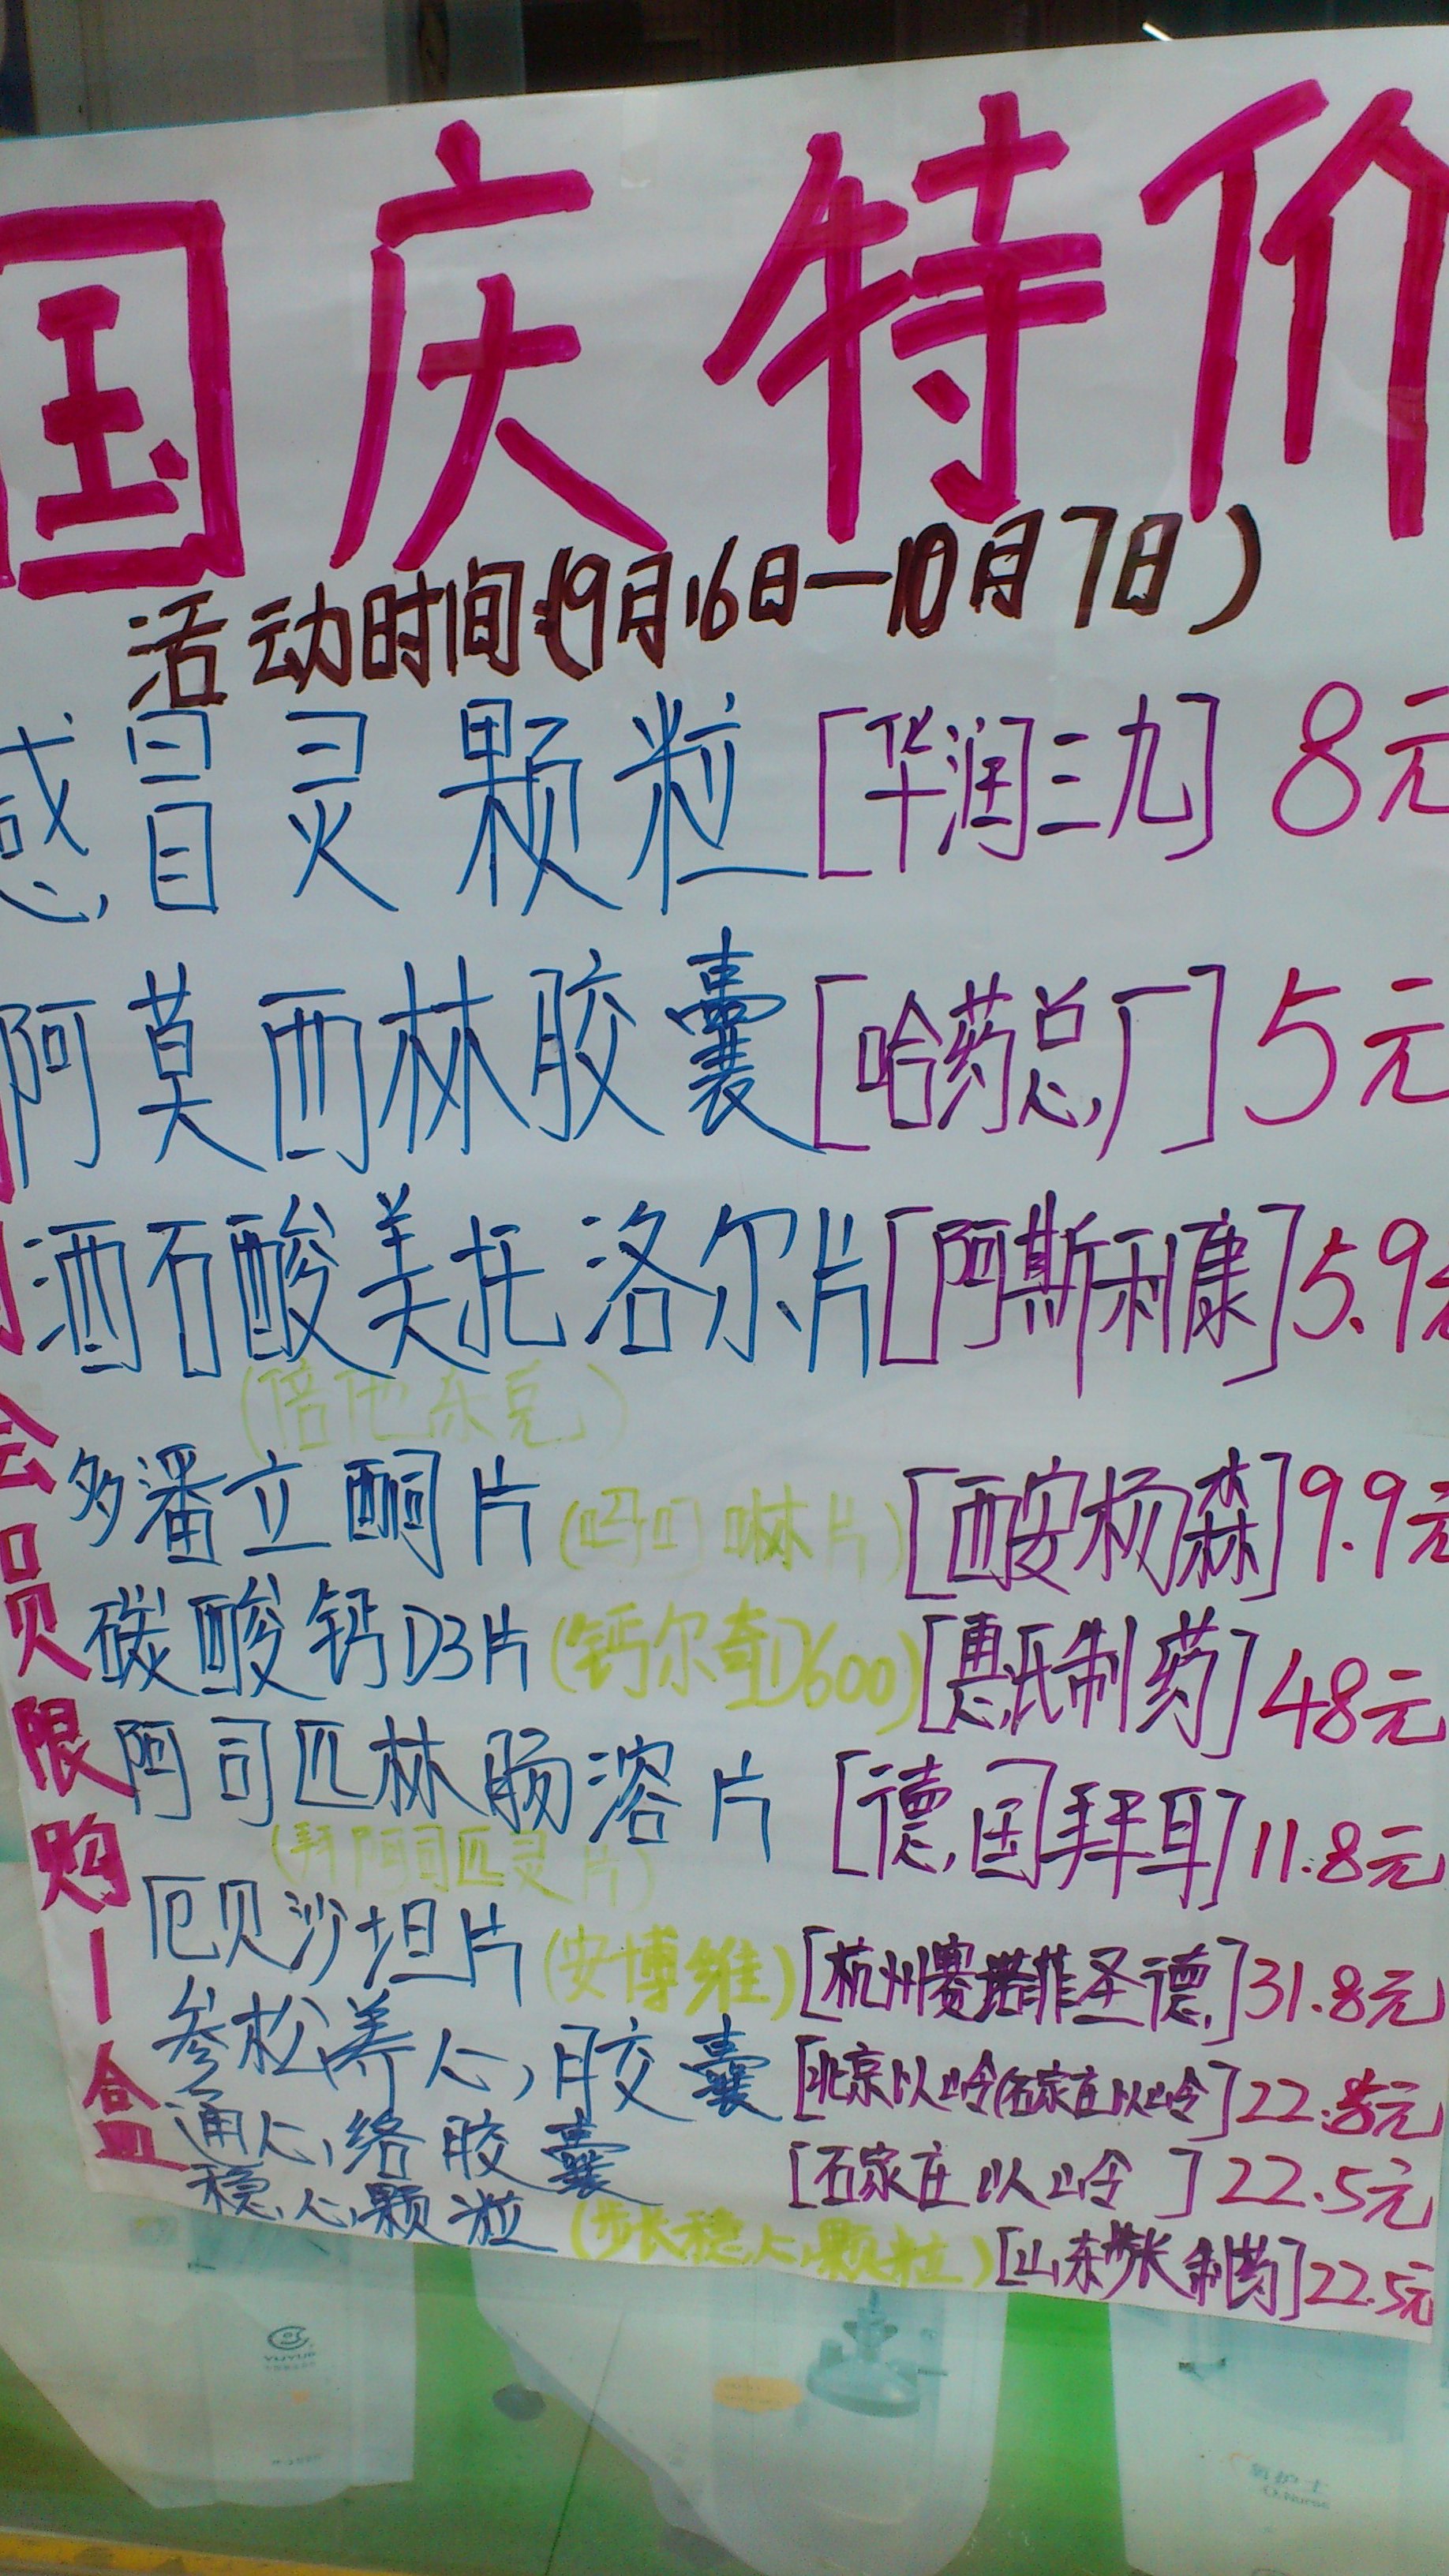 国庆特价
活动时间:(9月16日—10月7日)
感冒灵颗粒[华润三九]8元
阿莫西林胶囊[哈药总厂]5元
酒石酸美托洛尔片[阿斯利康]5.9元
(倍他乐克)
多潘立酮片(吗叮啉片)[西安杨森]9.9元
碳酸钙D3片(钙尔奇D600)[惠氏制药]48元
阿司匹林肠溶片[德国拜耳]11.8元
(拜阿司匹灵片)
厄贝沙坦片(安博维)[杭州赛诺菲圣德]31.8元
参松养心胶囊[北京以岭(石家庄以岭]22.8元
通心络胶囊[石家庄以岭]22.5元
稳心颗粒(步长稳心颗粒)[山东步长制药]22.5元
会员限购一盒
YUYUE
O.Nurse